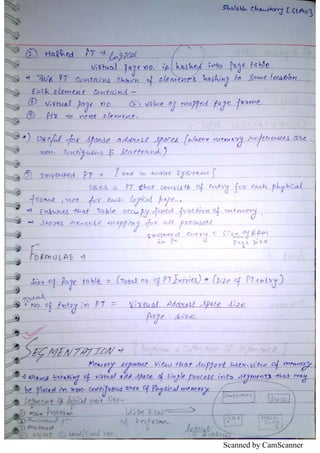 Shalabh Chaudhary [GLAU]
② Hashed PT →
Virtual page no. is hashed into page table
→ This PT contains chain of elements hashing to same location.
Each element contains -
① Virtual page no. ② value of mapped page frame
③ ptr to next element.
*) Useful for sparse address spaces (where memory references are
non-contiguous & scattered)
③ Inverted PT → {one in entire system}
Uses a PT that consists of entry for each physical
frame, not for each logical page.
→ Ensures that Table occupy fixed fraction of memory.
→ Stores reverse mapping for all processes
Inverted entry = Size of RAM
in PT Page Size
FORMULAE →
Size of Page table = (Total no. of PT Entries) * (Size of PT entry)
No. of Entry in PT = Virtual Address Space Size
Page size
SEGMENTATION →
Memory segment view that support user-view of memory
→ Allows breaking of virtual add. space of single process into segments that may
be placed in non-contiguous area of physical memory.
Segment is logical unit like -
① Main Program
User View
of Program
Stack
Scanned by CamScanner